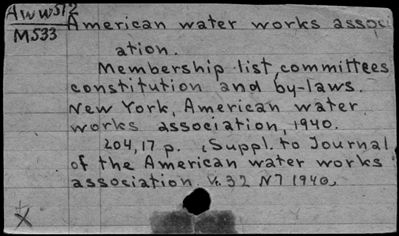 Aww512
M533
American water works associ
ation.
Membership list, committees
constitution and by-laws.
New York, American water
works association, 1940.
204, 17 p. (Suppl. to Journal
of the American water works
association V. 32 N7 1940,
X